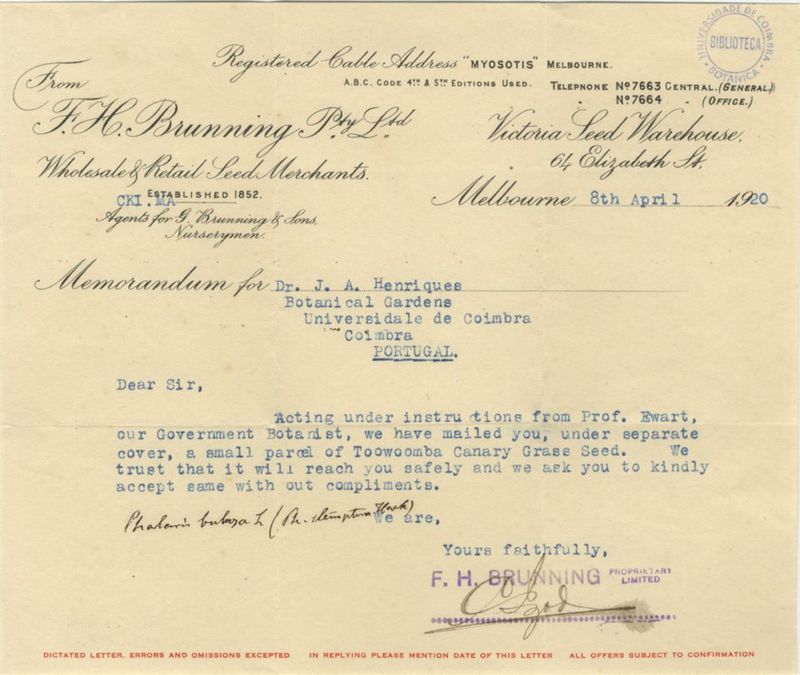 Registered Cable Address "MYOSOTIS" MELBOURNE.
A.B.C. CODE 4TH & 5TH EDITIONS USED.
UNIVERSIDADE DE COIMBRA
BIBLIOTECA
BOTANICA
TELEPHONE Nº7663 CENTRAL. (GENERAL.)
Nº7664 (OFFICE.)
From
F. H. Brunning Pty Ltd
Wholesale & Retail Seed Merchants.
ESTABLISHED 1852.
CKI.MA
Agents for G. Brunning & Sons.
Nurserymen.
Victoria Seed Warehouse,
64 Elizabeth St.
Melbourne 8th April 1920
Memorandum for Dr. J. A. Henriques
Botanical Gardens
Universidale de Coimbra
Coimbra
PORTUGAL.
Dear Sir,
Acting under instructions from Prof. Ewart,
our Government Botanist, we have mailed you, under separate
cover, a small parcel of Toowoomba Canary Grass Seed. We
trust that it will reach you safely and we ask you to kindly
accept same with out compliments.
Phalaris L (Ph.
We are,
Yours faithfully,
F. H. BRUNNING PROPRIETARY LIMITED
DICTATED LETTER, ERRORS AND OMISSIONS EXCEPTED IN REPLYING PLEASE MENTION DATE OF THIS LETTER ALL OFFERS SUBJECT TO CONFIRMATION